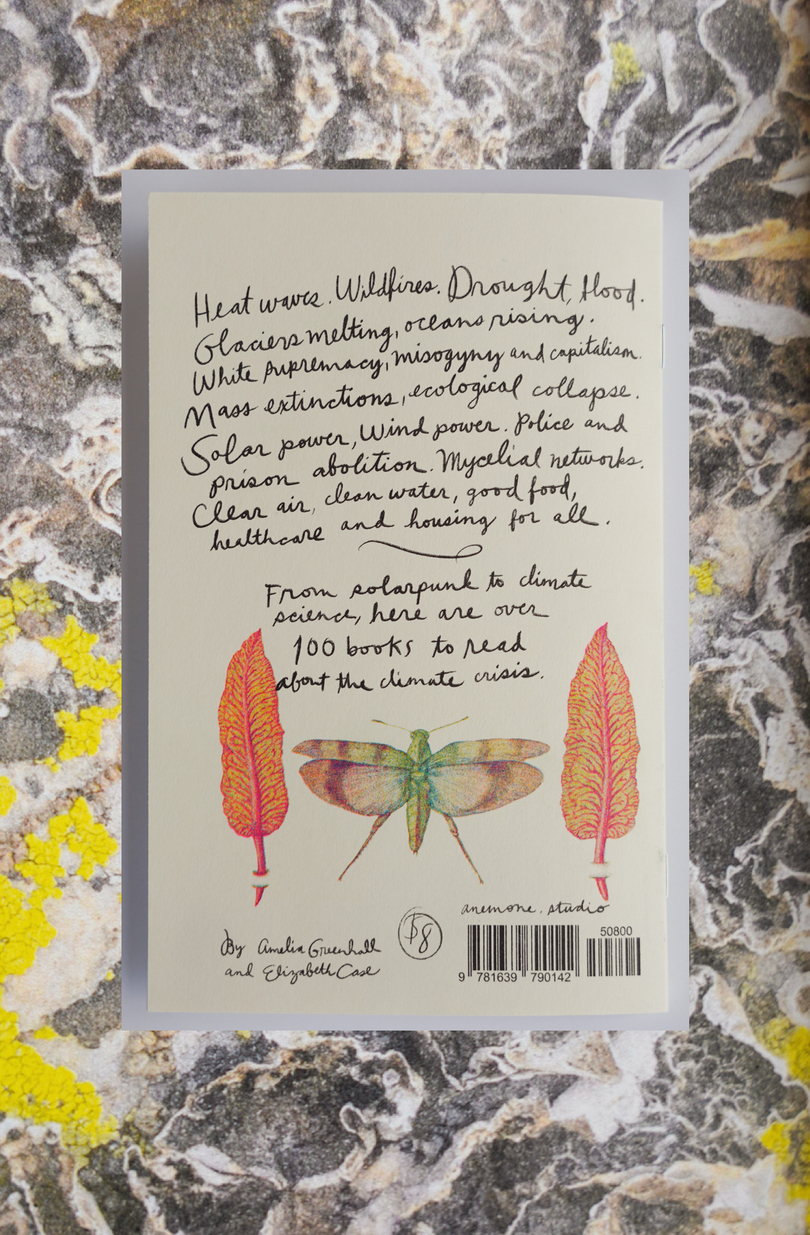 Heat waves. Wildfires. Drought, flood.
Glaciers melting, oceans rising.
White supremacy, misogyny and capitalism.
Mass extinctions, ecological collapse.
Solar power, Wind power. Police and
prison abolition. Mycelial networks.
Clear air, clean water, good food,
healthcare and housing for all.
From solarpunk to climate
science, here are over
100 books to read
about the climate crisis.
anemone.studio
By Amelia Greenhall
and Elizabeth Case
$8
50800
9 781639 790142